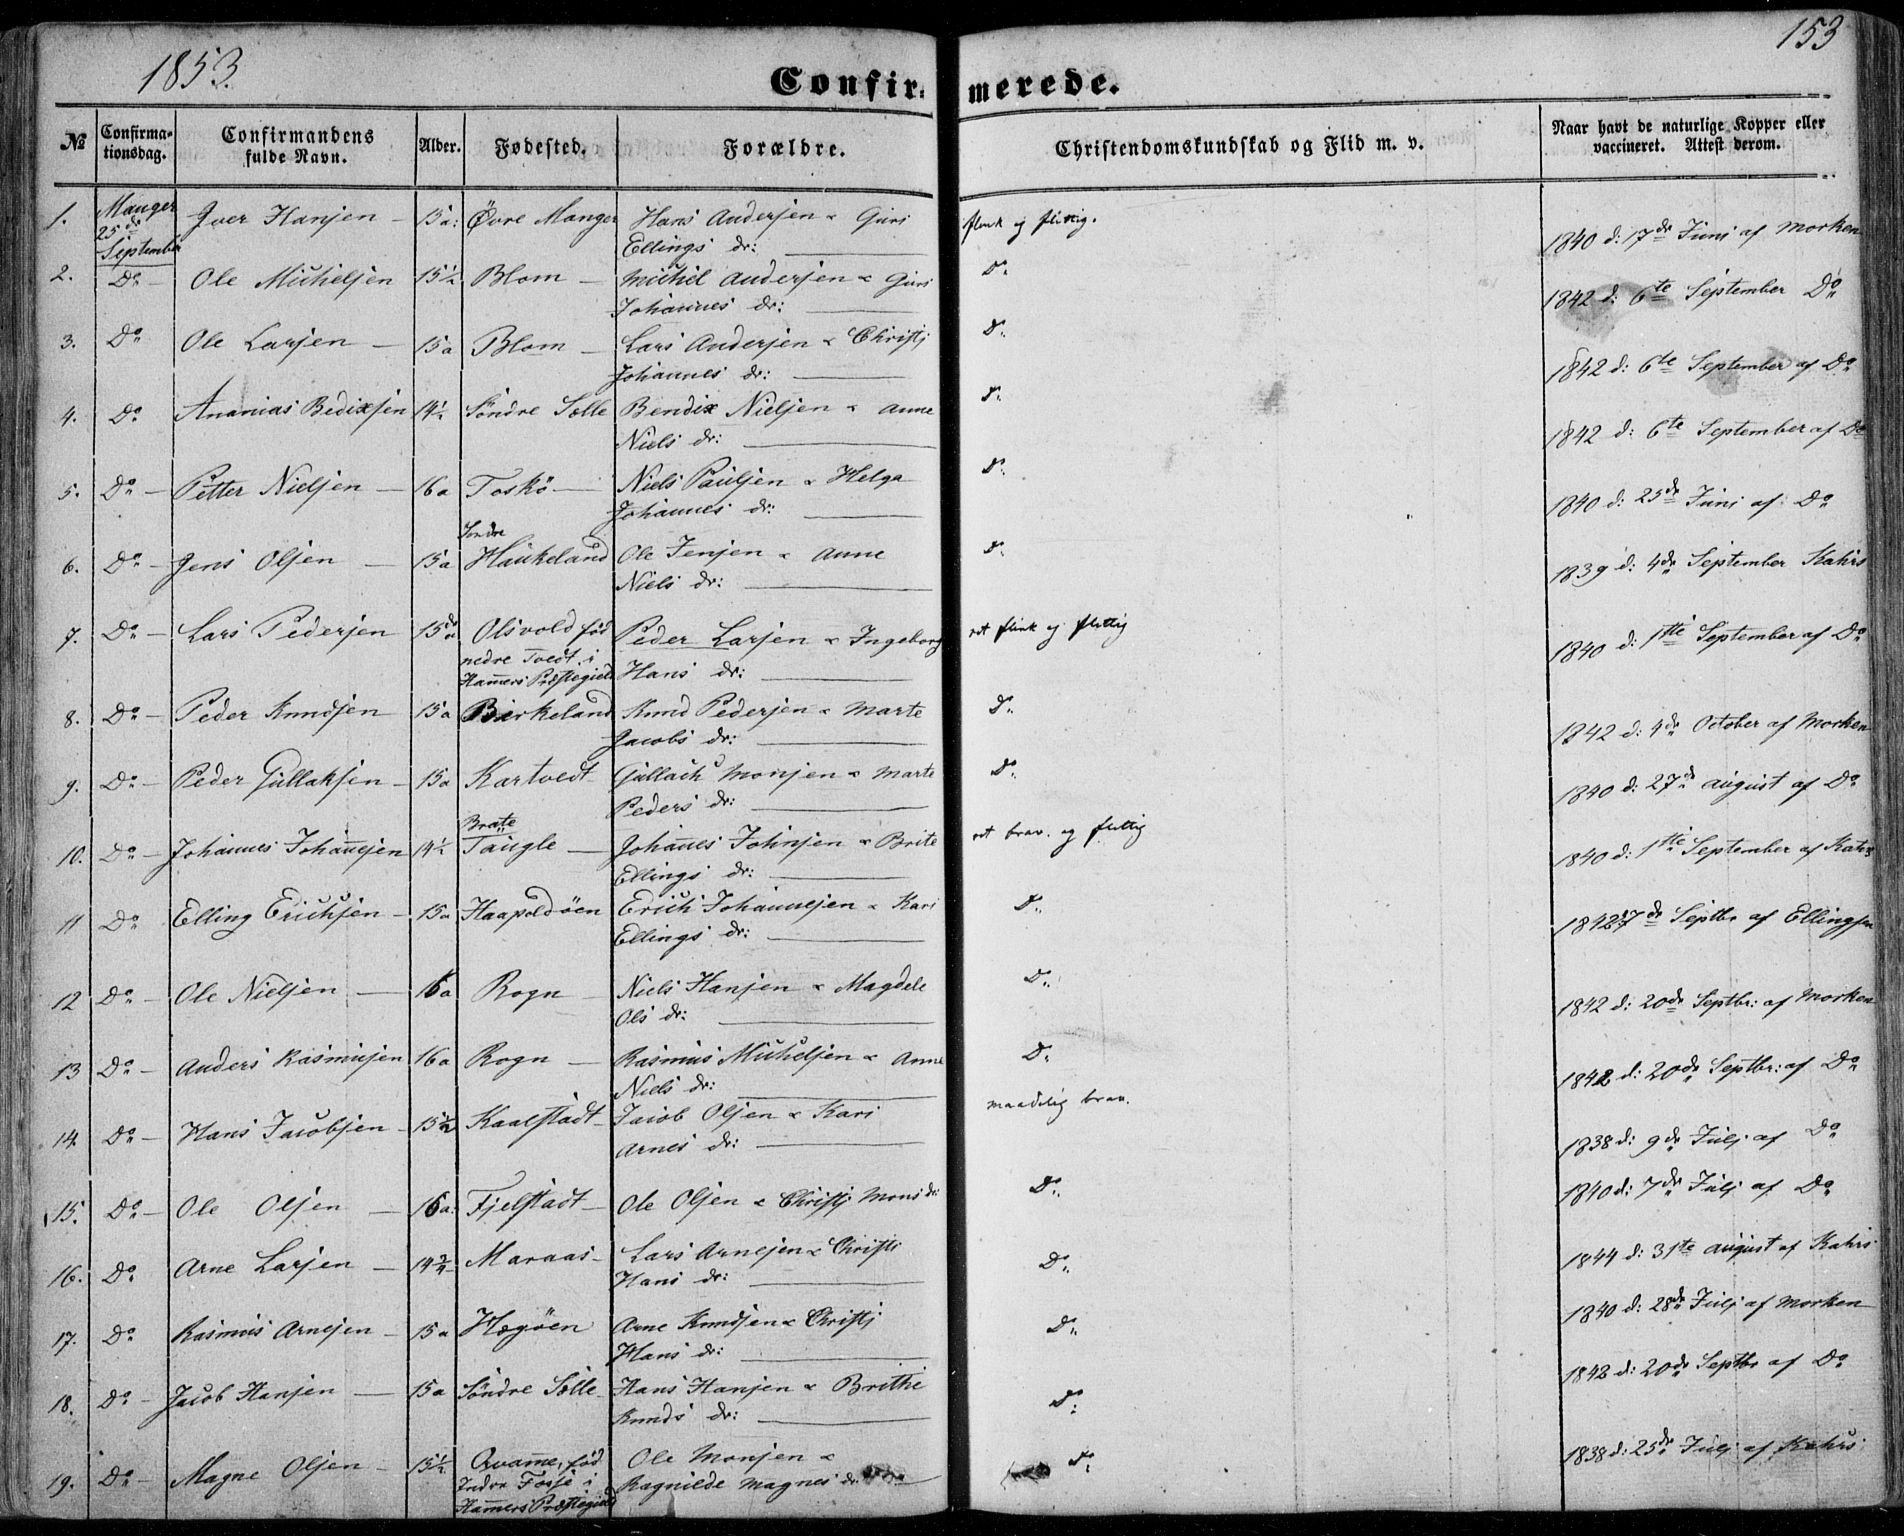 1853.
153
Confir- merede.
№
Confirma-
tionsdag.
Confirmandens
fulde Navn.
Alder.
Fødested.
Forældre.
Christendomskundskab og Flid m. v.
Naar havt de naturlige Kopper eller
vaccineret. Attest derom.
1. Manger 25de September Iver Hansen – 15 a: Øvre Manger Hans Andersen & Guri flink og flittig. 1840 d: 17de Juni af Morken
Ellings dr:
2. Do – Ole Michelsen 15½ Blom – Michel Andersen & Guri Do 1842 d: 6te September Do
Johannes dr:
3. Do Ole Larsen – 15 a Blom – Lars Andersen & Christi Do 1842 d: 6te September af Do
Johannes dr:
4. Do Ananias Bedixsen 14½ Søndre Sælle Bendix Nielsen & Anne Do 1842 d: 6te September af Do
Niels dr:
5. Do – Petter Nielsen – 16 a Toskø – Niels Paulsen & Helga Do 1840 d: 25de Juni af Do
Johannes dr:
6. Do – Jens Olsen – 15 a Søndre Haukeland Ole Jensen & Anne Do 1839 d: 4de September Kahrs
Niels dr:
7. Do – Lars Pedersen 15 a Olsvold fød Peder Larsen & Ingeborg ret flink og flittig 1840 d: 1ste September af Do
nedre Tvedt i
Hamers Præstegield Hans dr:
8. Do – Peder Knudsen 15 a Birkeland Knud Pedersen & Marte Do 1842 d: 4de October af Morken
Jacobs dr:
9. Do – Peder Gullaksen – 15 a Kartvedt Gullach Monsen & Marte Do 1840 d: 27de august af Do
Peders dr:
10. Do – Johannes Johannesen 14½ Bratte Taugle – Johannes Johnsen & Brite ret brav og flittig 1840 d: 1ste September af Kahrs
Ellings dr:
11 Do Elling Erichsen – 15 a Haapoldøen Erich Johannesen & Kari Do 1842 17de Septbr af Ellingsen
Ellings dr:
12 Do – Ole Nielsen – 16 a Rogn – Niels Hansen & Magdele Do 1842 d: 20de Septbr: af Morken
Ols dr:
13 Do – Anders Rasmusen 16 a Rogn – Rasmus Michelsen & Anne Do 1842 d: 20de Septbr: af Do
Niels dr:
14. Do – Hans Jacobsen – 15½ Kaalstadt – Jacob Olsen & Kari maadelig brav. 1838 d: 9de Juli af Do
Arnes dr:
15. Do – Ole Olsen – 16 a: Fjelstadt – Ole Olsen & Christi Mons dr: Do 1840 d: 7de Juli af Do
16. Do Arne Larsen – 14¾ Maraas – Lars Arnesen & Christi Do 1844 d: 31te august af Kahrs
Hans dr:
17. Do Rasmus Arnesen – 15 a Hægøen Arne Knudsen & Christi Do 1840 d: 28de Juli af Morken
Hans dr:
18. Do – Jacob Hansen – 15 a Søndre Sælle Hans Hansen & Brithe Do 1842 d: 20de Septbr af Do
Knuds dr:
19. Do – Magne Olsen – 15½ Qvamme, fød Ole Monsen & Do 1838 d: 25de Juli af Kahrs
Indre Fosse i Ragnilde Magnes dr:
Hamers Præstegield